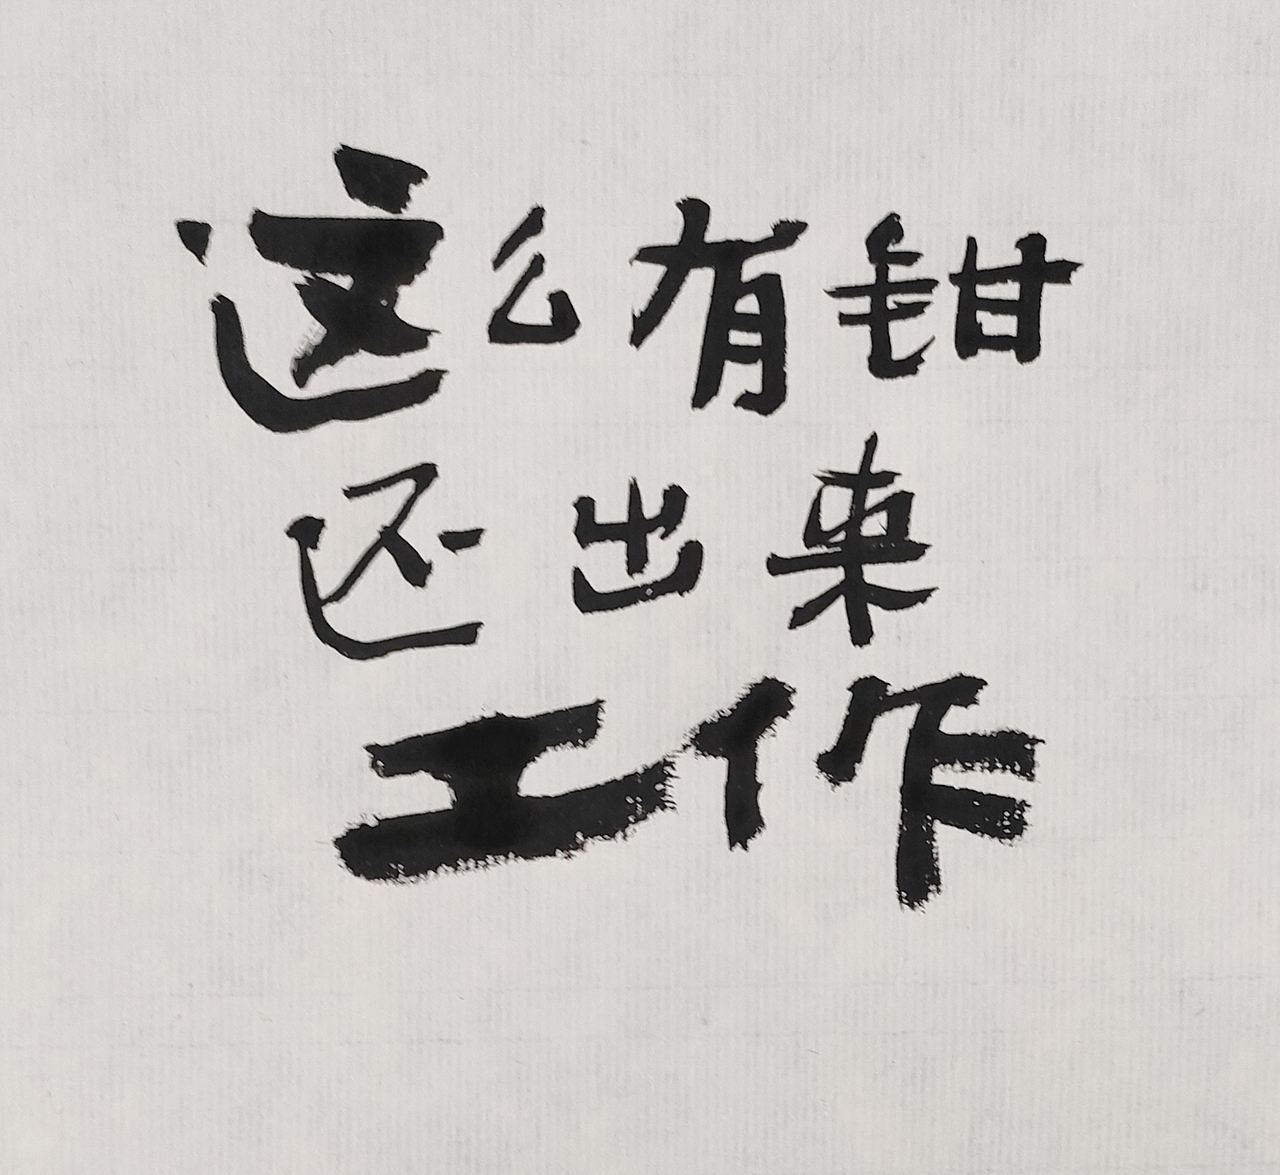 这么有钳
还出来
工作